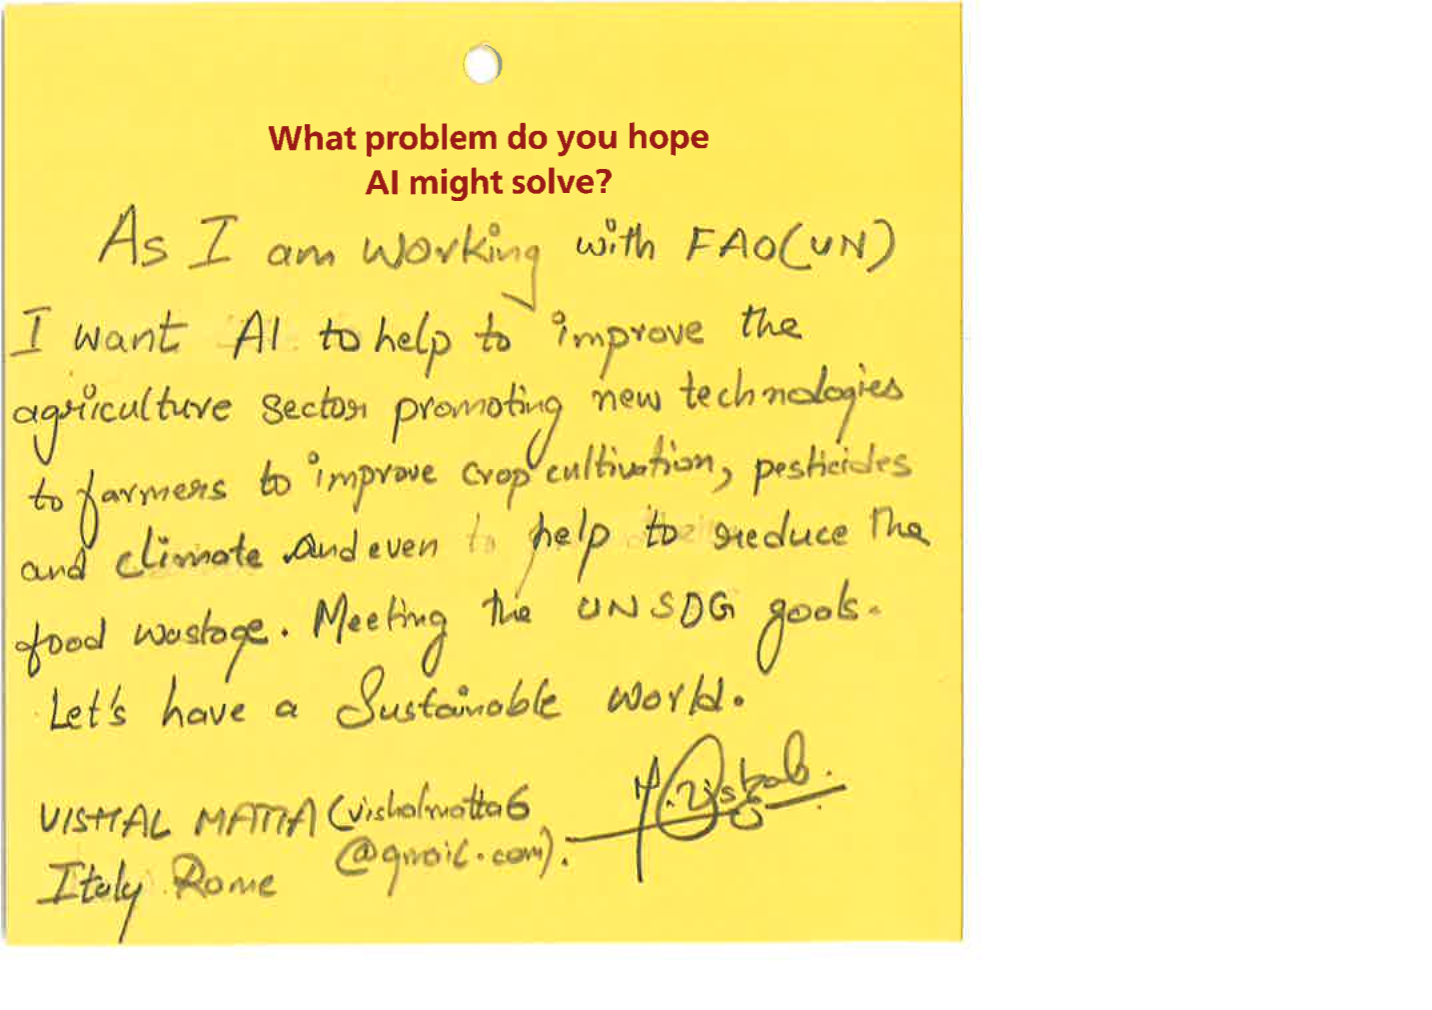 What problem do you hope
AI might solve?
As I am working with FAO(UN)
I want AI to help to improve the
agriculture sector promoting new technologies
to farmers to improve crop cultivation, pesticides
and climate and even to help to reduce the
food wastage. Meeting the UNSDG goals.
Let's have a Sustainable world.
VISHAL MATTA (vishalmatta6
@gmail.com).
Italy Rome
M.Vishal.